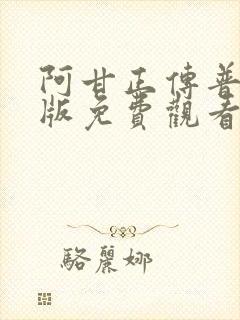 阿甘正傳普
版免費觀看
駱麗娜